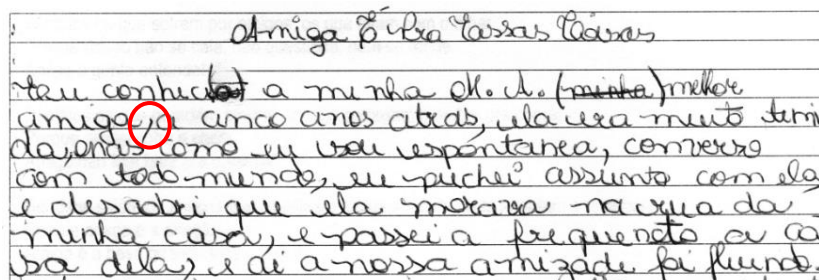 Amiga É Pra Essas Coisas
eu conheci a minha M. A. (minha) melhor
amiga, a cinco anos atras, ela era muito timi
da, mas como eu sou espontanea, converso
com todo mundo, eu puchei assunto com ela
e descobri que ela morava na rua da
minha casa, e passei a frequenta a ca
sa dela, e ai a nossa amizade foi fluindo,